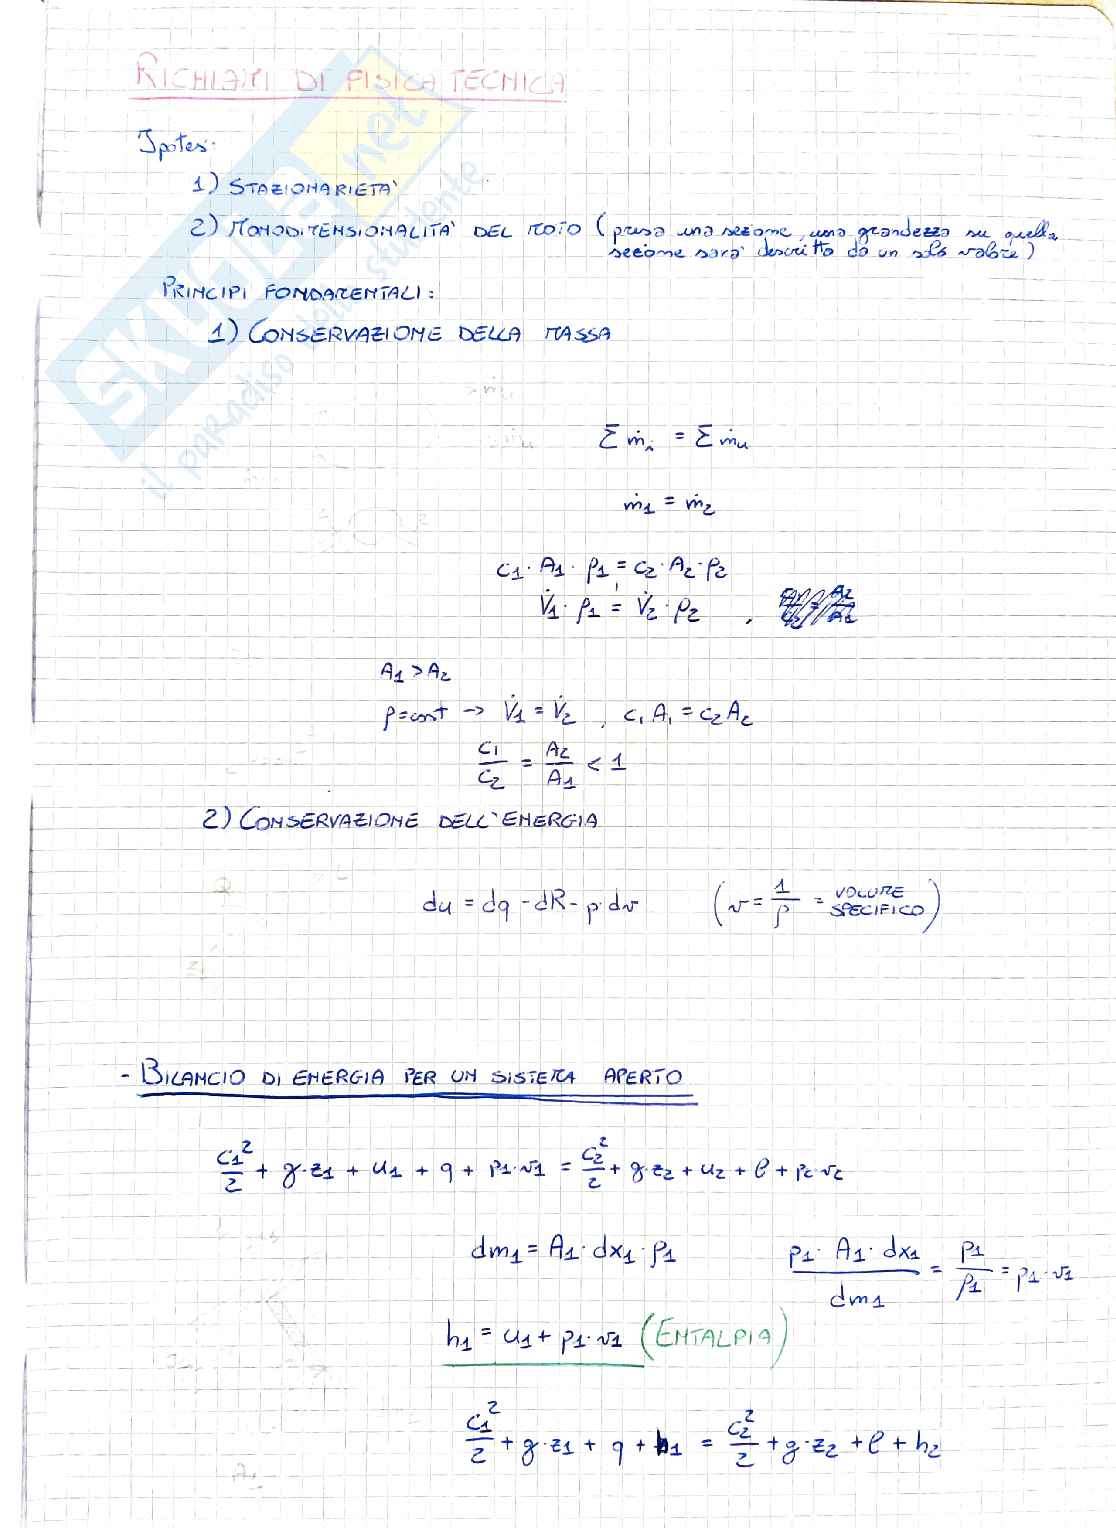 RICHIAMI DI FISICA TECNICA
Ipotesi:
1) STAZIONARIETA'
2) MONODIMENSIONALITA' DEL MOTO (presa una sezione, una grandezza su quella
sezione sarà descritto da un solo valore)
PRINCIPI FONDAMENTALI:
1) CONSERVAZIONE DELLA MASSA
Σ ṁi = Σ ṁu
ṁ1 = ṁ2
c1 · A1 · ρ1 = c2 · A2 · ρ2
V̇1 · ρ1 = V̇2 · ρ2 ,
A1 > A2
ρ = cost → V̇1 = V̇2 , c1 A1 = c2 A2
c1/c2 = A2/A1 < 1
2) CONSERVAZIONE DELL'ENERGIA
du = dq - dR - p·dv (v = 1/ρ = VOLUME SPECIFICO)
- BILANCIO DI ENERGIA PER UN SISTEMA APERTO
c1²/2 + g·z1 + u1 + q + p1·v1 = c2²/2 + g·z2 + u2 + l + p2·v2
dm1 = A1 · dx1 · ρ1 p1 · A1 · dx1/dm1 = p1/ρ1 = p1·v1
h1 = u1 + p1·v1 (ENTALPIA)
c1²/2 + g·z1 + q + h1 = c2²/2 + g·z2 + l + h2
SKUOLA.net
il paradiso dello studente